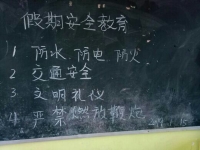 假期安全教育
1 防水 防电 防火
2 交通安全
3 文明礼仪
4 严禁燃放鞭炮